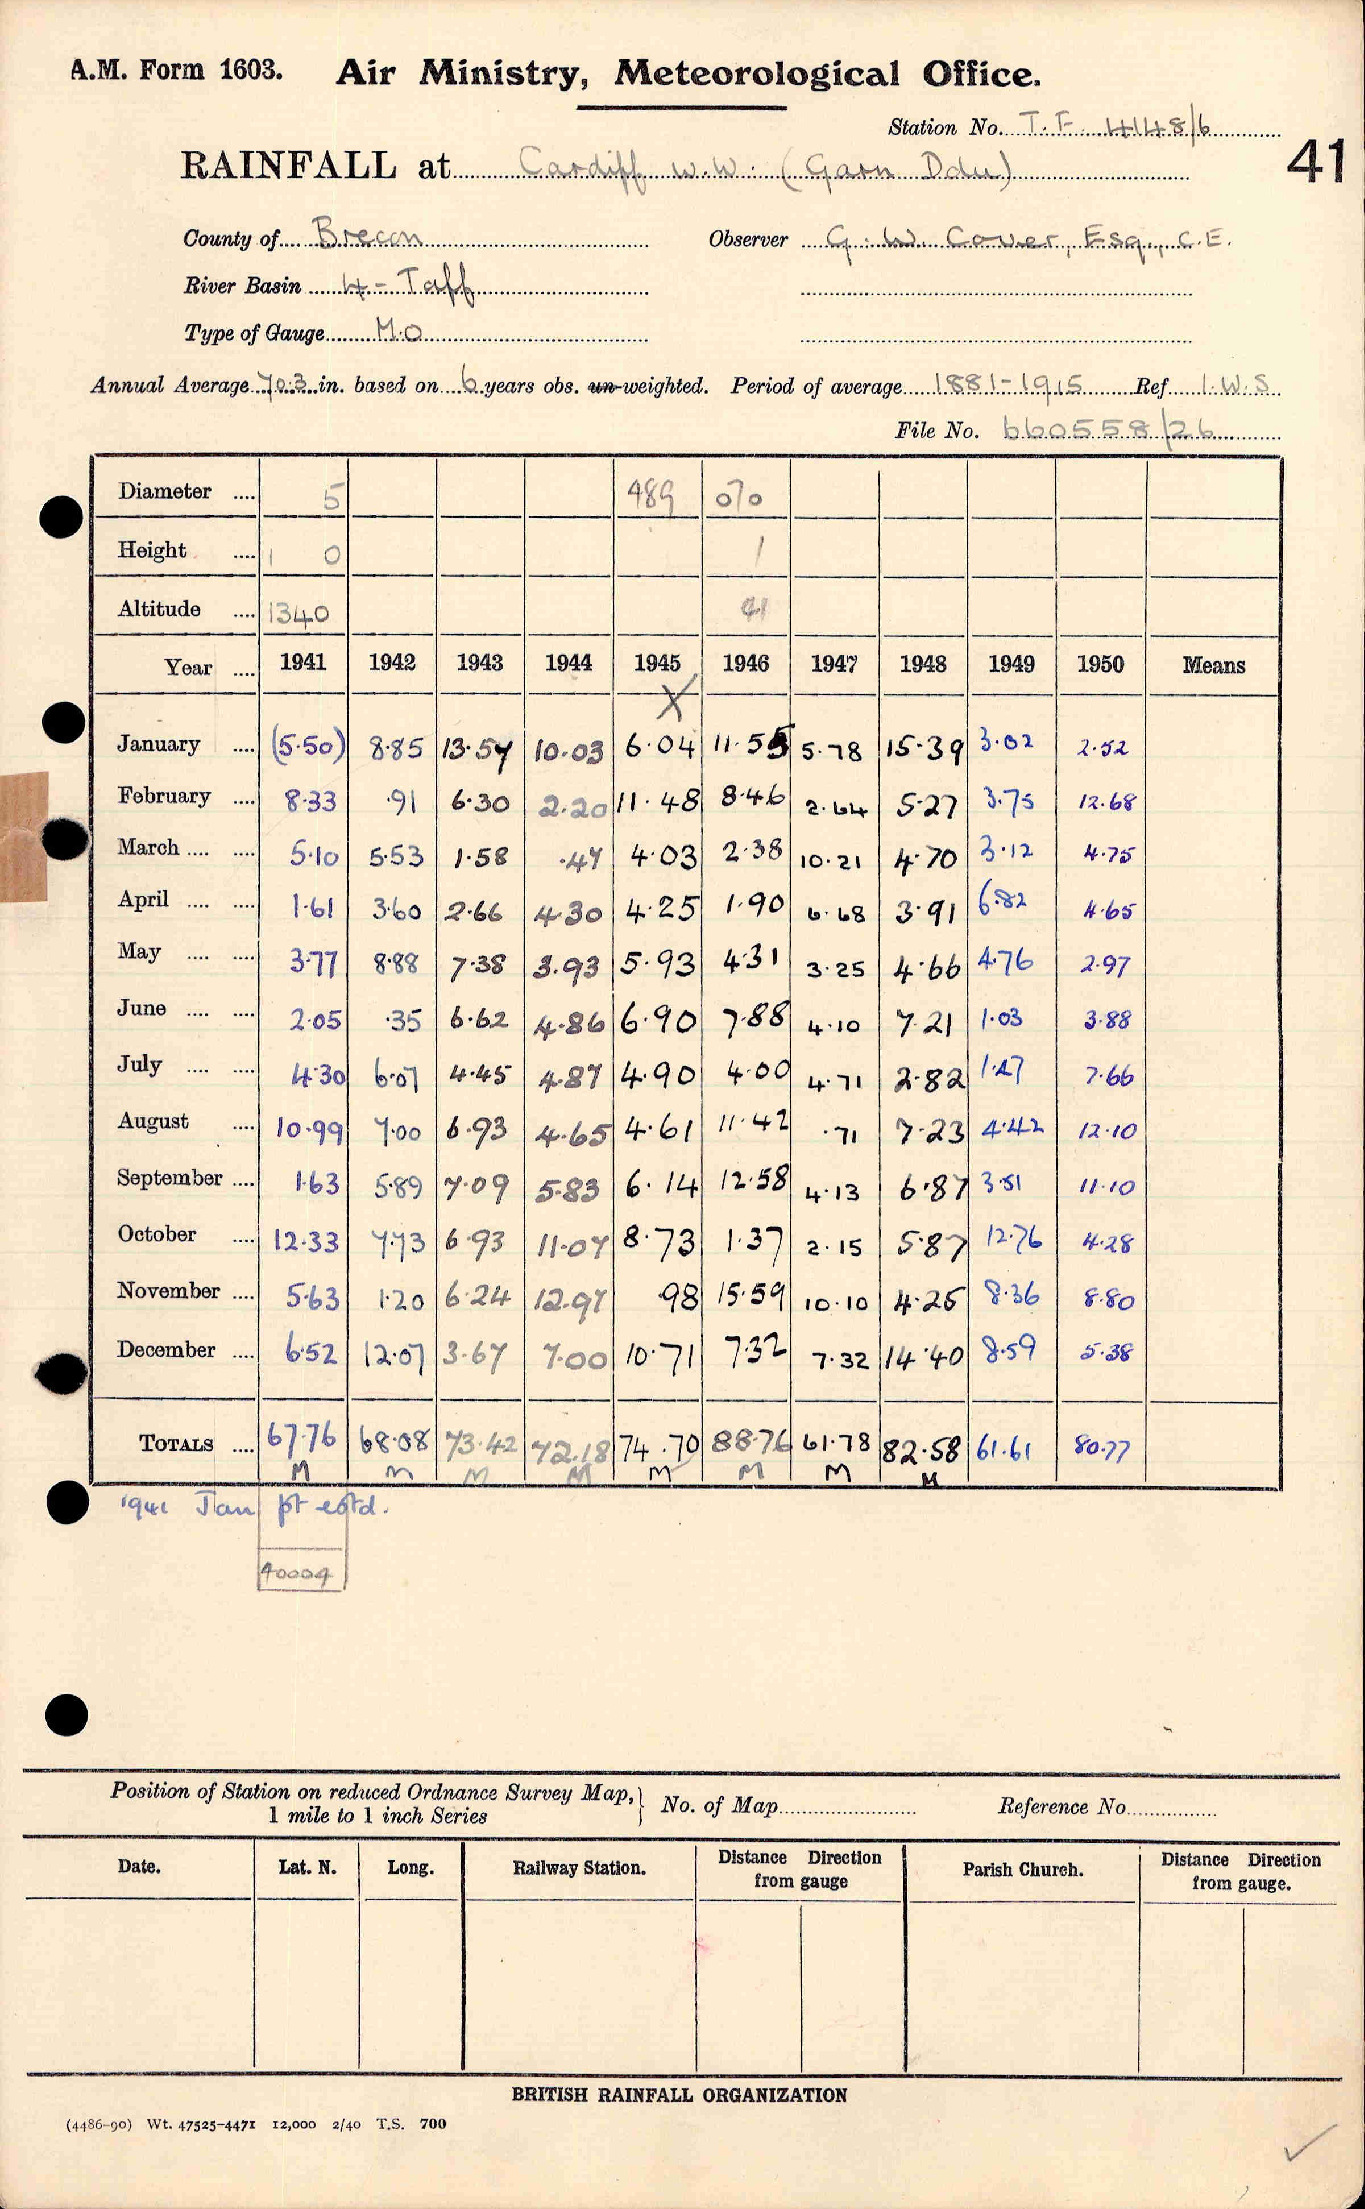 A.M. Form 1603. Air Ministry, Meteorological Office.
Station No. T.F. 4148/6
41
RAINFALL at Cardiff W.W. (Garn Ddu)
County of Brecon Observer G. W. Cover, Esq., C.E.
River Basin 4 - Taff
Type of Gauge M.O
Annual Average 70.3 in. based on 6 years obs. un-weighted. Period of average 1881-1915 Ref. I.W.S.
File No. 660558/26
Diameter .... 5 489 070
Height .... 1 0 1
Altitude .... 1340 41
Year .... 1941 1942 1943 1944 1945 1946 1947 1948 1949 1950 Means
X
January .... (5.50) 8.85 13.57 10.03 6.04 11.55 5.78 15.39 3.02 2.52
February .... 8.33 .91 6.30 2.20 11.48 8.46 2.64 5.27 3.75 12.68
March .... .... 5.10 5.53 1.58 .47 4.03 2.38 10.21 4.70 3.12 4.75
April .... .... 1.61 3.60 2.66 4.30 4.25 1.90 6.68 3.91 6.82 4.65
May .... .... 3.77 8.88 7.38 3.93 5.93 4.31 3.25 4.66 4.76 2.97
June .... .... 2.05 .35 6.62 4.86 6.90 7.88 4.10 7.21 1.03 3.88
July .... .... 4.30 6.07 4.45 4.87 4.90 4.00 4.71 2.82 1.47 7.66
August .... 10.99 7.00 6.93 4.65 4.61 11.42 .71 7.23 4.42 12.10
September .... 1.63 5.89 7.09 5.83 6.14 12.58 4.13 6.87 3.51 11.10
October .... 12.33 7.73 6.93 11.07 8.73 1.37 2.15 5.87 12.76 4.28
November .... 5.63 1.20 6.24 12.97 .98 15.59 10.10 4.25 8.36 8.80
December .... 6.52 12.07 3.67 7.00 10.71 7.32 7.32 14.40 8.59 5.38
TOTALS .... 67.76 68.08 73.42 72.18 74.70 88.76 61.78 82.58 61.61 80.77
M M M M M M M M
1941 Jan pt estd.
40004
Position of Station on reduced Ordnance Survey Map, } No. of Map Reference No.
1 mile to 1 inch Series
Date. Lat. N. Long. Railway Station. Distance from gauge Direction Parish Church. Distance from gauge. Direction
BRITISH RAINFALL ORGANIZATION
(4486-90) Wt. 47525-4471 12,000 2/40 T.S. 700